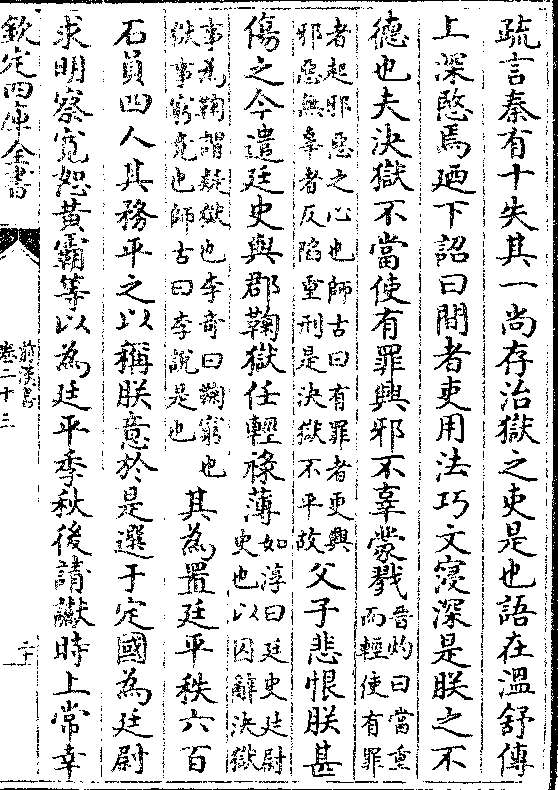 疏言秦有十失其一尚存治獄之吏是也語在溫舒傳
上深愍焉廼下詔曰間者吏用法巧文寖深是朕之不
德也夫決獄不當使有罪興邪不辜蒙戮晉灼曰當重而輕使有罪
者起邪惡之心也師古曰有罪者更興邪惡無辜者反陷重刑是決獄不平故父子悲恨朕甚
傷之今遣廷史與郡鞠獄任輕祿薄如淳曰廷史廷尉史也以囚辭決獄
事為鞠謂疑獄也李竒曰鞠窮也獄事窮竟也師古曰李說是也其為置廷平秩六百
石員四人其務平之以稱朕意於是選于定國為廷尉
求明察寛恕黃霸等以為廷平季秋後請讞時上常幸
欽定四庫全書
前漢書
卷二十三
二十